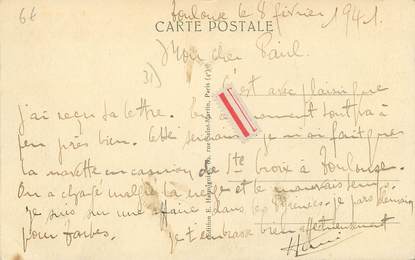 66
Toulouse le 8 février 1941.
CARTE POSTALE
Mon cher Paul.
31)
C'est avec plaisir que
j'ai reçu ta lettre. En ce moment tout va à
peu près bien. Cette semaine je n'ai fait que
la navette en camion de Ste Croix à Toulouse.
On a chargé malgré la neige et le mauvais temps.
je suis sur une affaire dans les Pyrénées. je pars demain
pour Tarbes. je t'embrasse bien affectueusement
Henri
Edition E. rue Saint-Martin, Paris (4e)